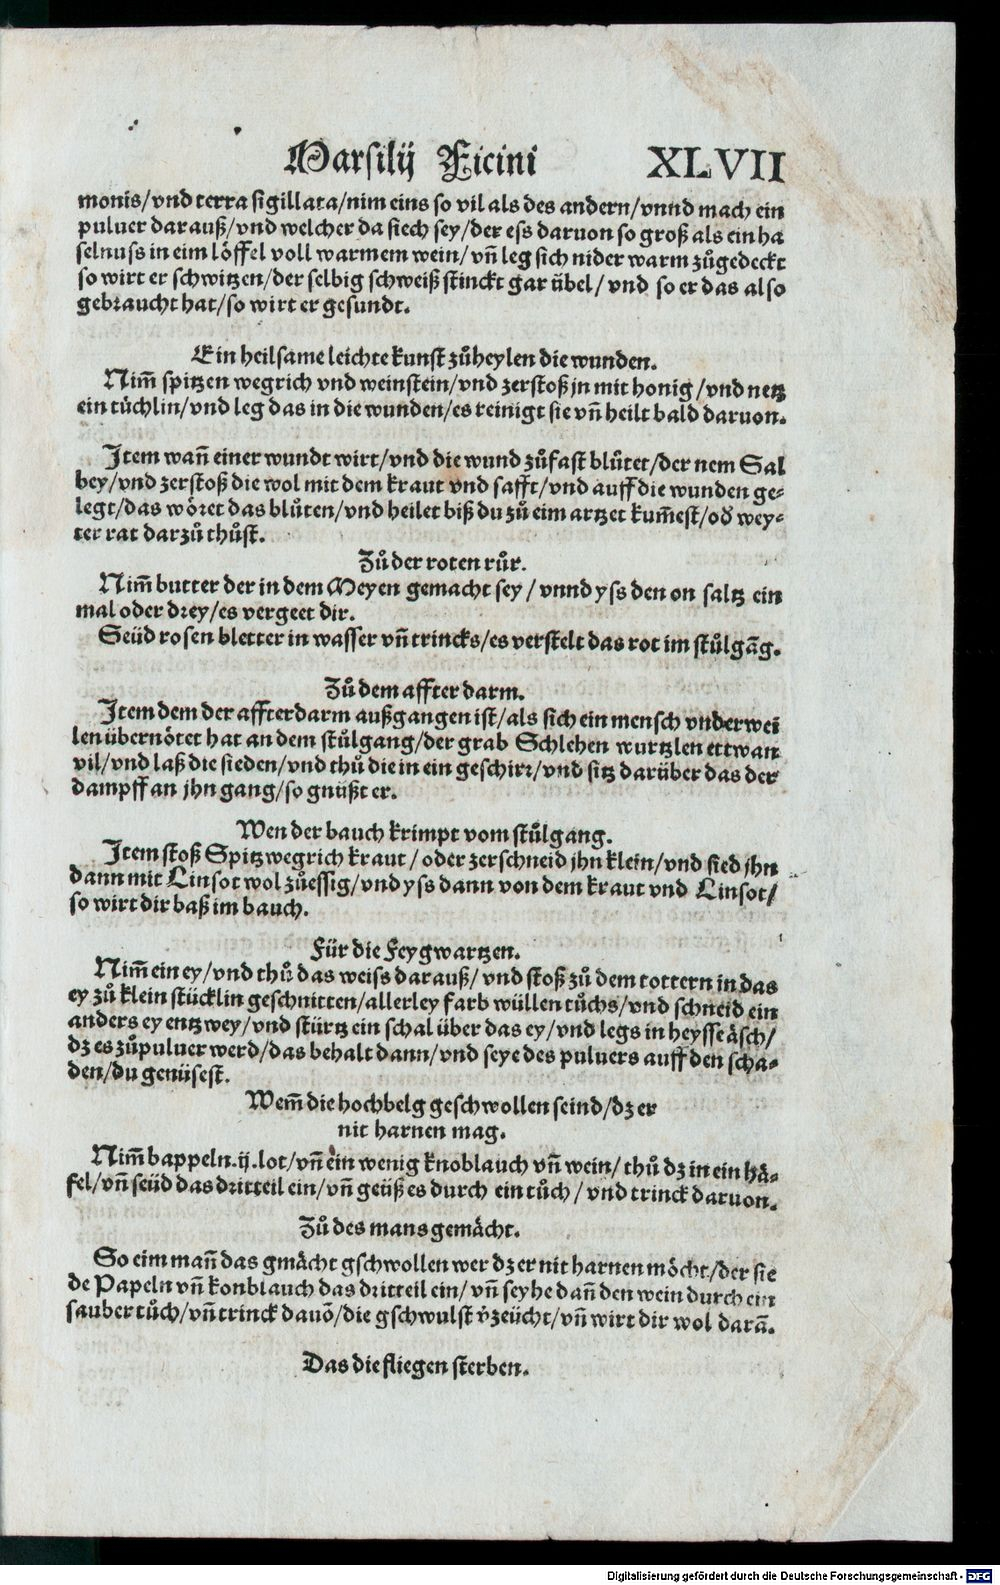 Marsilij Ficini XLVII
monis/vnd terra sigillata/nim eins so vil als des andern/vnnd mach ein
puluer darauß/vnd welcher da siech sey/der ess daruon so groß als ein ha
selnuss in eim löffel voll warmem wein/vñ leg sich nider warm zůgedeckt
so wirt er schwitzen/der selbig schweiß stinckt gar übel/vnd so er das also
gebraucht hat/so wirt er gesundt.
Ein heilsame leichte kunst zůheylen die wunden.
Nim̃ spitzen wegrich vnd weinstein/vnd zerstoß jn mit honig/vnd netz
ein tüchlin/vnd leg das in die wunden/es reinigt sie vñ heilt bald daruon.
Item wañ einer wundt wirt/vnd die wund zůfast blůtet/der nem Sal
bey/vnd zerstoß die wol mit dem kraut vnd safft/vnd auff die wunden ge-
legt/das wöret das blůten/vnd heilet biß du zů eim artzet kum̃est/od̃ wey-
ter rat darzů thůst.
Zů der roten růr.
Nim̃ butter der in dem Meyen gemacht sey/vnnd yss den on saltz ein
mal oder drey/es vergeet dir.
Seüd rosen bletter in wasser vñ trincks/es verstelt das rot im stůlgãg.
Zů dem affter darm.
Item dem der affterdarm außgangen ist/als sich ein mensch vnderwei
len übernötet hat an dem stůlgang/der grab Schlehen wurtzlen ettwan
vil/vnd laß die sieden/vnd thů die in ein geschirr/vnd sitz darüber das der
dampff an jhn gang/so gnüßt er.
Wen der bauch krimpt vom stůlgang.
Item stoß Spitzwegrich kraut/oder zerschneid jhn klein/vnd sied jhn
dann mit Linsot wol zůessig/vnd yss dann von dem kraut vnd Linsot/
so wirt dir baß im bauch.
Für die Feygwartzen.
Nim̃ ein ey/vnd thů das weiss darauß/vnd stoß zů dem tottern in das
ey zů klein stücklin geschnitten/allerley farb wüllen tůchs/vnd schneid ein
anders ey entzwey/vnd stürtz ein schal über das ey/vnd legs in heysse äsch/
dz es zůpuluer werd/das behalt dann/vnd seye des puluers auff den scha-
den/du genüsest.
Wem̃ die hochbelg geschwollen seind/dz er
nit harnen mag.
Nim̃ bappeln.ij.lot/vñ ein wenig knoblauch vñ wein/thů dz in ein hä-
fel/vñ seüd das dritteil ein/vñ geüß es durch ein tůch/vnd trinck daruon.
Zů des mans gemächt.
So eim mañ das gmächt gschwollen wer dz er nit harnen möcht/der sie
de Papeln vñ konblauch das dritteil ein/vñ seyhe dañ den wein durch ein
sauber tůch/vñ trinck dauõ/die gschwulst v̈zeücht/vñ wirt dir wol darã.
Das die fliegen sterben.
Digitalisierung gefördert durch die Deutsche Forschungsgemeinschaft - DFG